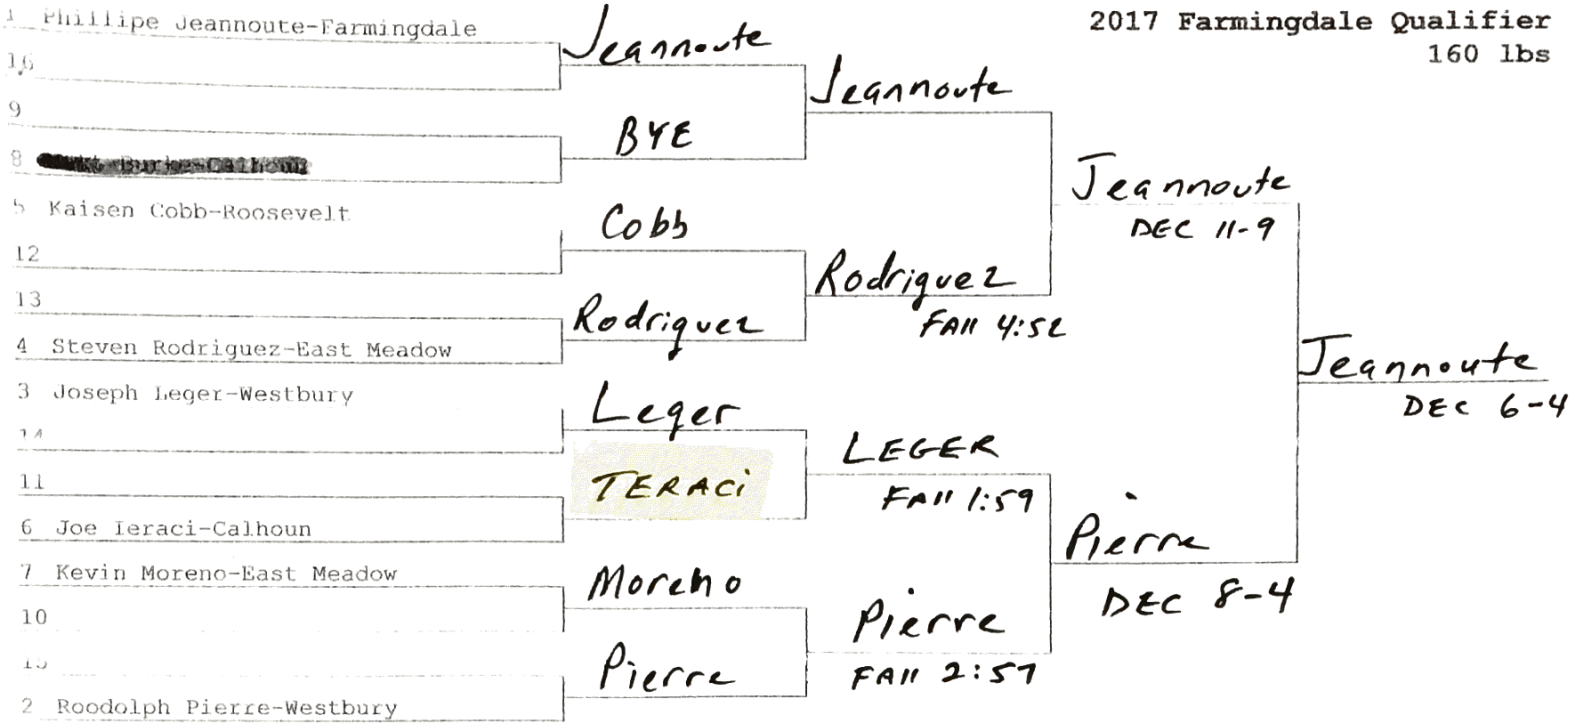 2017 Farmingdale Qualifier
160 lbs
1 Phillipe Jeannoute-Farmingdale
16
9
8
5 Kaisen Cobb-Roosevelt
12
13
4 Steven Rodriguez-East Meadow
3 Joseph Leger-Westbury
14
11
6 Joe Ieraci-Calhoun
7 Kevin Moreno-East Meadow
10
15
2 Roodolph Pierre-Westbury
Jeannoute
BYE
Cobb
Rodriguez
Leger
TERACi
Moreno
Pierre
Jeannoute
Rodriguez
FAll 4:52
LEGER
FAll 1:59
Pierre
FAll 2:57
Jeannoute
DEC 11-9
Pierre
DEC 8-4
Jeannoute
DEC 6-4